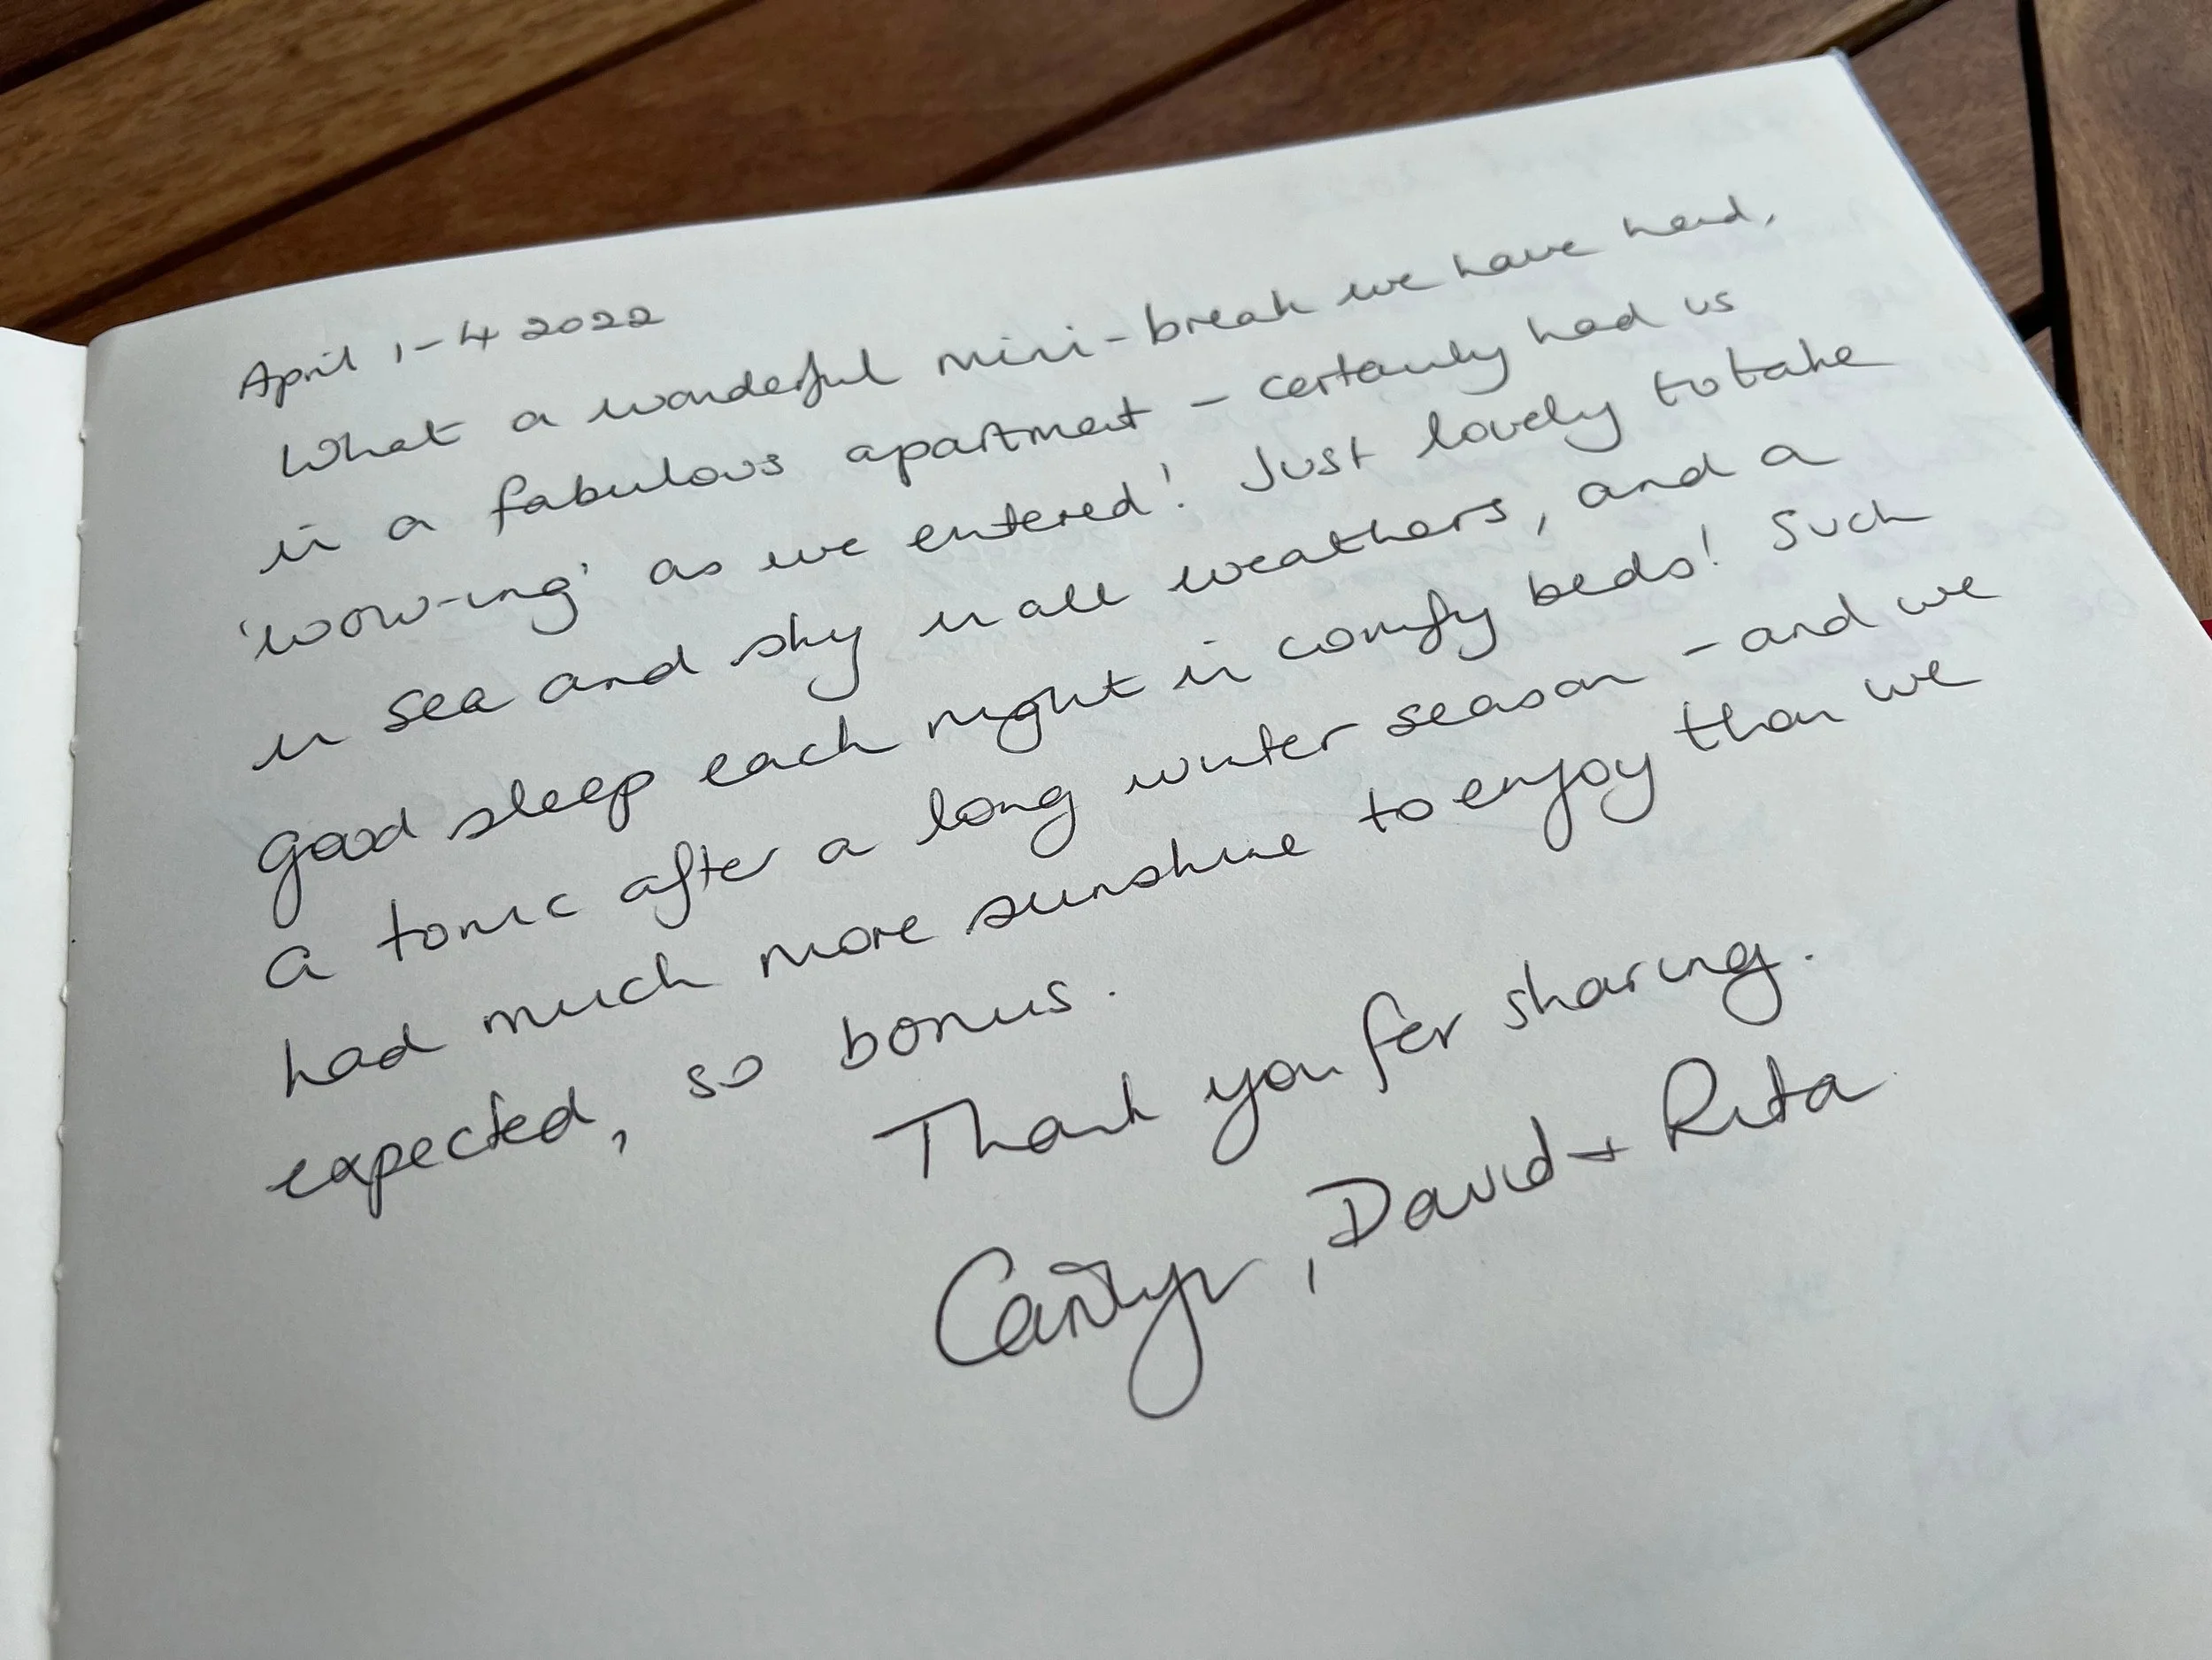 April 1-4 2022
What a wonderful mini-break we have had,
in a fabulous apartment - certainly had us
'wow-ing' as we entered! Just lovely to take
in sea and sky in all weathers, and a
good sleep each night in comfy beds! Such
a tonic after a long winter season - and we
had much more sunshine to enjoy than we
expected, so bonus.
Thank you for sharing.
, David + Rita